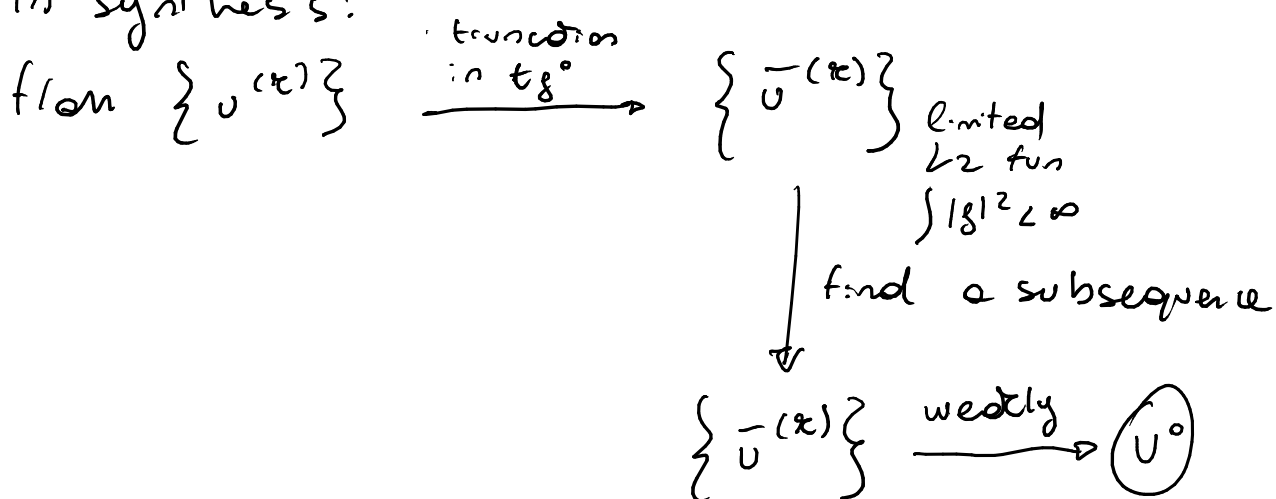 in synthesis:
from {u^(k)} truncation in tf° → {ū^(k)} limited
L2 fun
∫|f|² < ∞
find a subsequence
{ū^(k)} weakly → u°